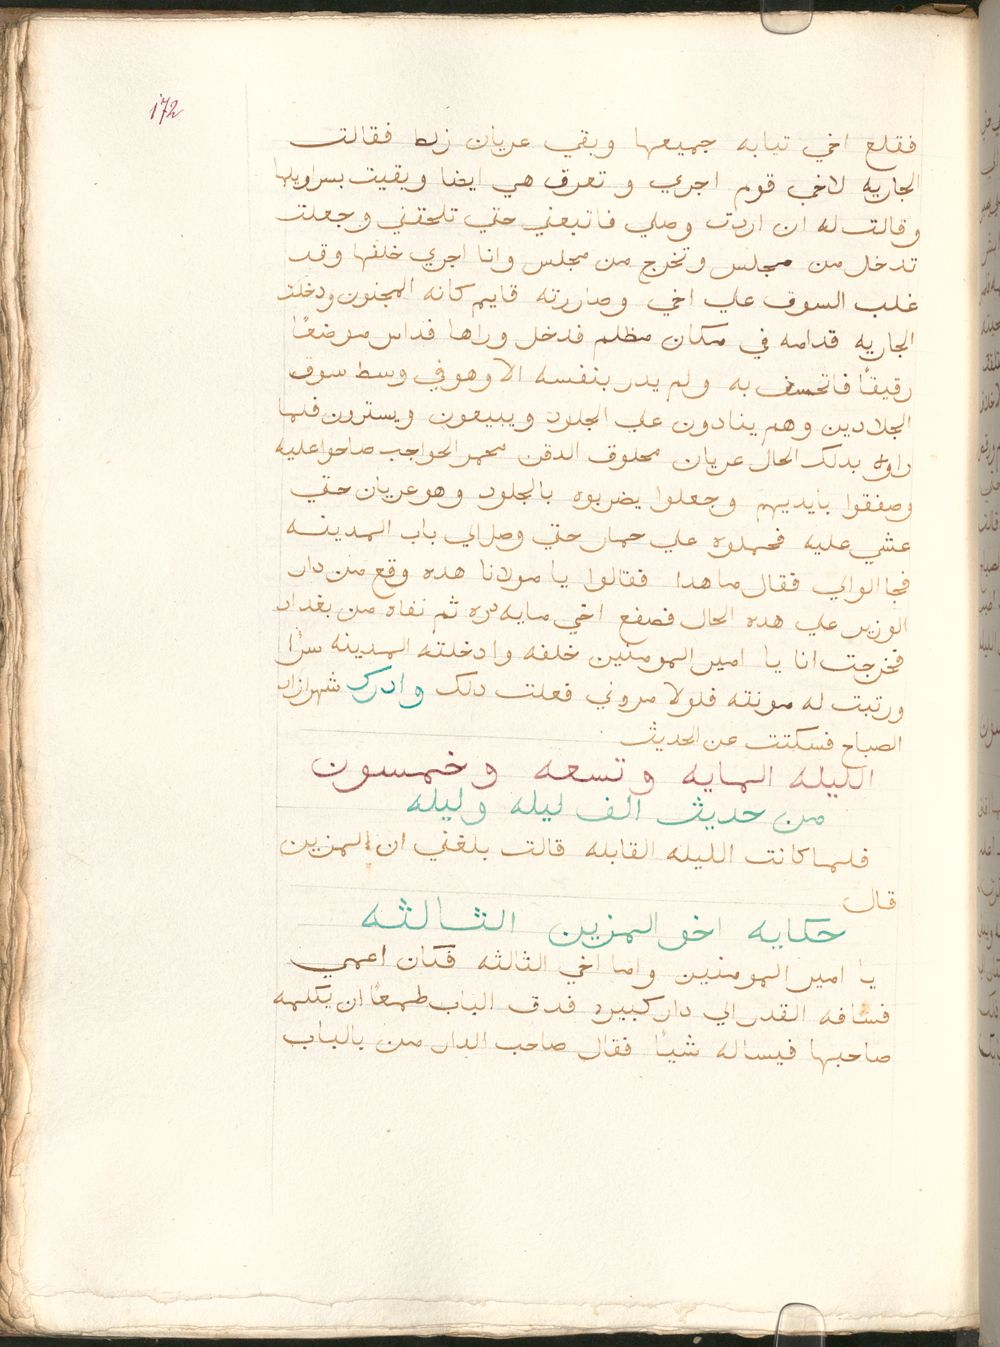 172
فقلع اخي تيابه جميعها وبقي عريان زلط فقالت
الجاريه لاخي قوم اجري وتعرف هي ايضا وبقيت بسراويلها
وقالت له ان اردت وصلي فاتبعني حتي تلحقني وجعلت
تدخل من مجلس وتخرج من مجلس وانا اجري خلفها وقد
غلب السوق علي اخي وصار زته قايم كانه المجنون ودخلت
الجاريه قدامه في مكان مظلم فدخل وراها فداس موضعًا
رقيقًا فانخسف به ولم يدر بنفسه الا وهو في وسط سوق
الجلادين وهم ينادون علي الجلود ويبيعون ويسترون فلما
راوه بدلك الحال عريان محلوق الدقن محمر الحواجب صاحوا عليه
وصفقوا بايديهم وجعلوا يضربوه بالجلود وهو عريان حتي
عشي عليه فحملوه علي حمار حتي وصل الي باب المدينه
فجا الوالي فقال ما هدا فقالوا يا مولانا هده وقع من دار
الوزير علي هده الحال فصفع اخي مايه دره ثم نفاه من بغداد
فخرجت انا يا امير المومنين خلفه وادخلته المدينه سرًا
ورتبت له مونته فلولا مروني فعلت دلك وادرك شهرازاد
الصباح فسكتت عن الحديث
الليله المايه وتسعه وخمسون
من حديث الف ليله وليله
فلما كانت الليله القابله قالت بلغني ان المزين
قال
حكايه اخو المزين الثالثه
يا امير المومنين واما اخي الثالثه فكان اعمي
فساقه القدر الي دار كبيره فدق الباب طمعًا ان يكلمه
صاحبها فيساله شيًا فقال صاحب الدار من بالباب